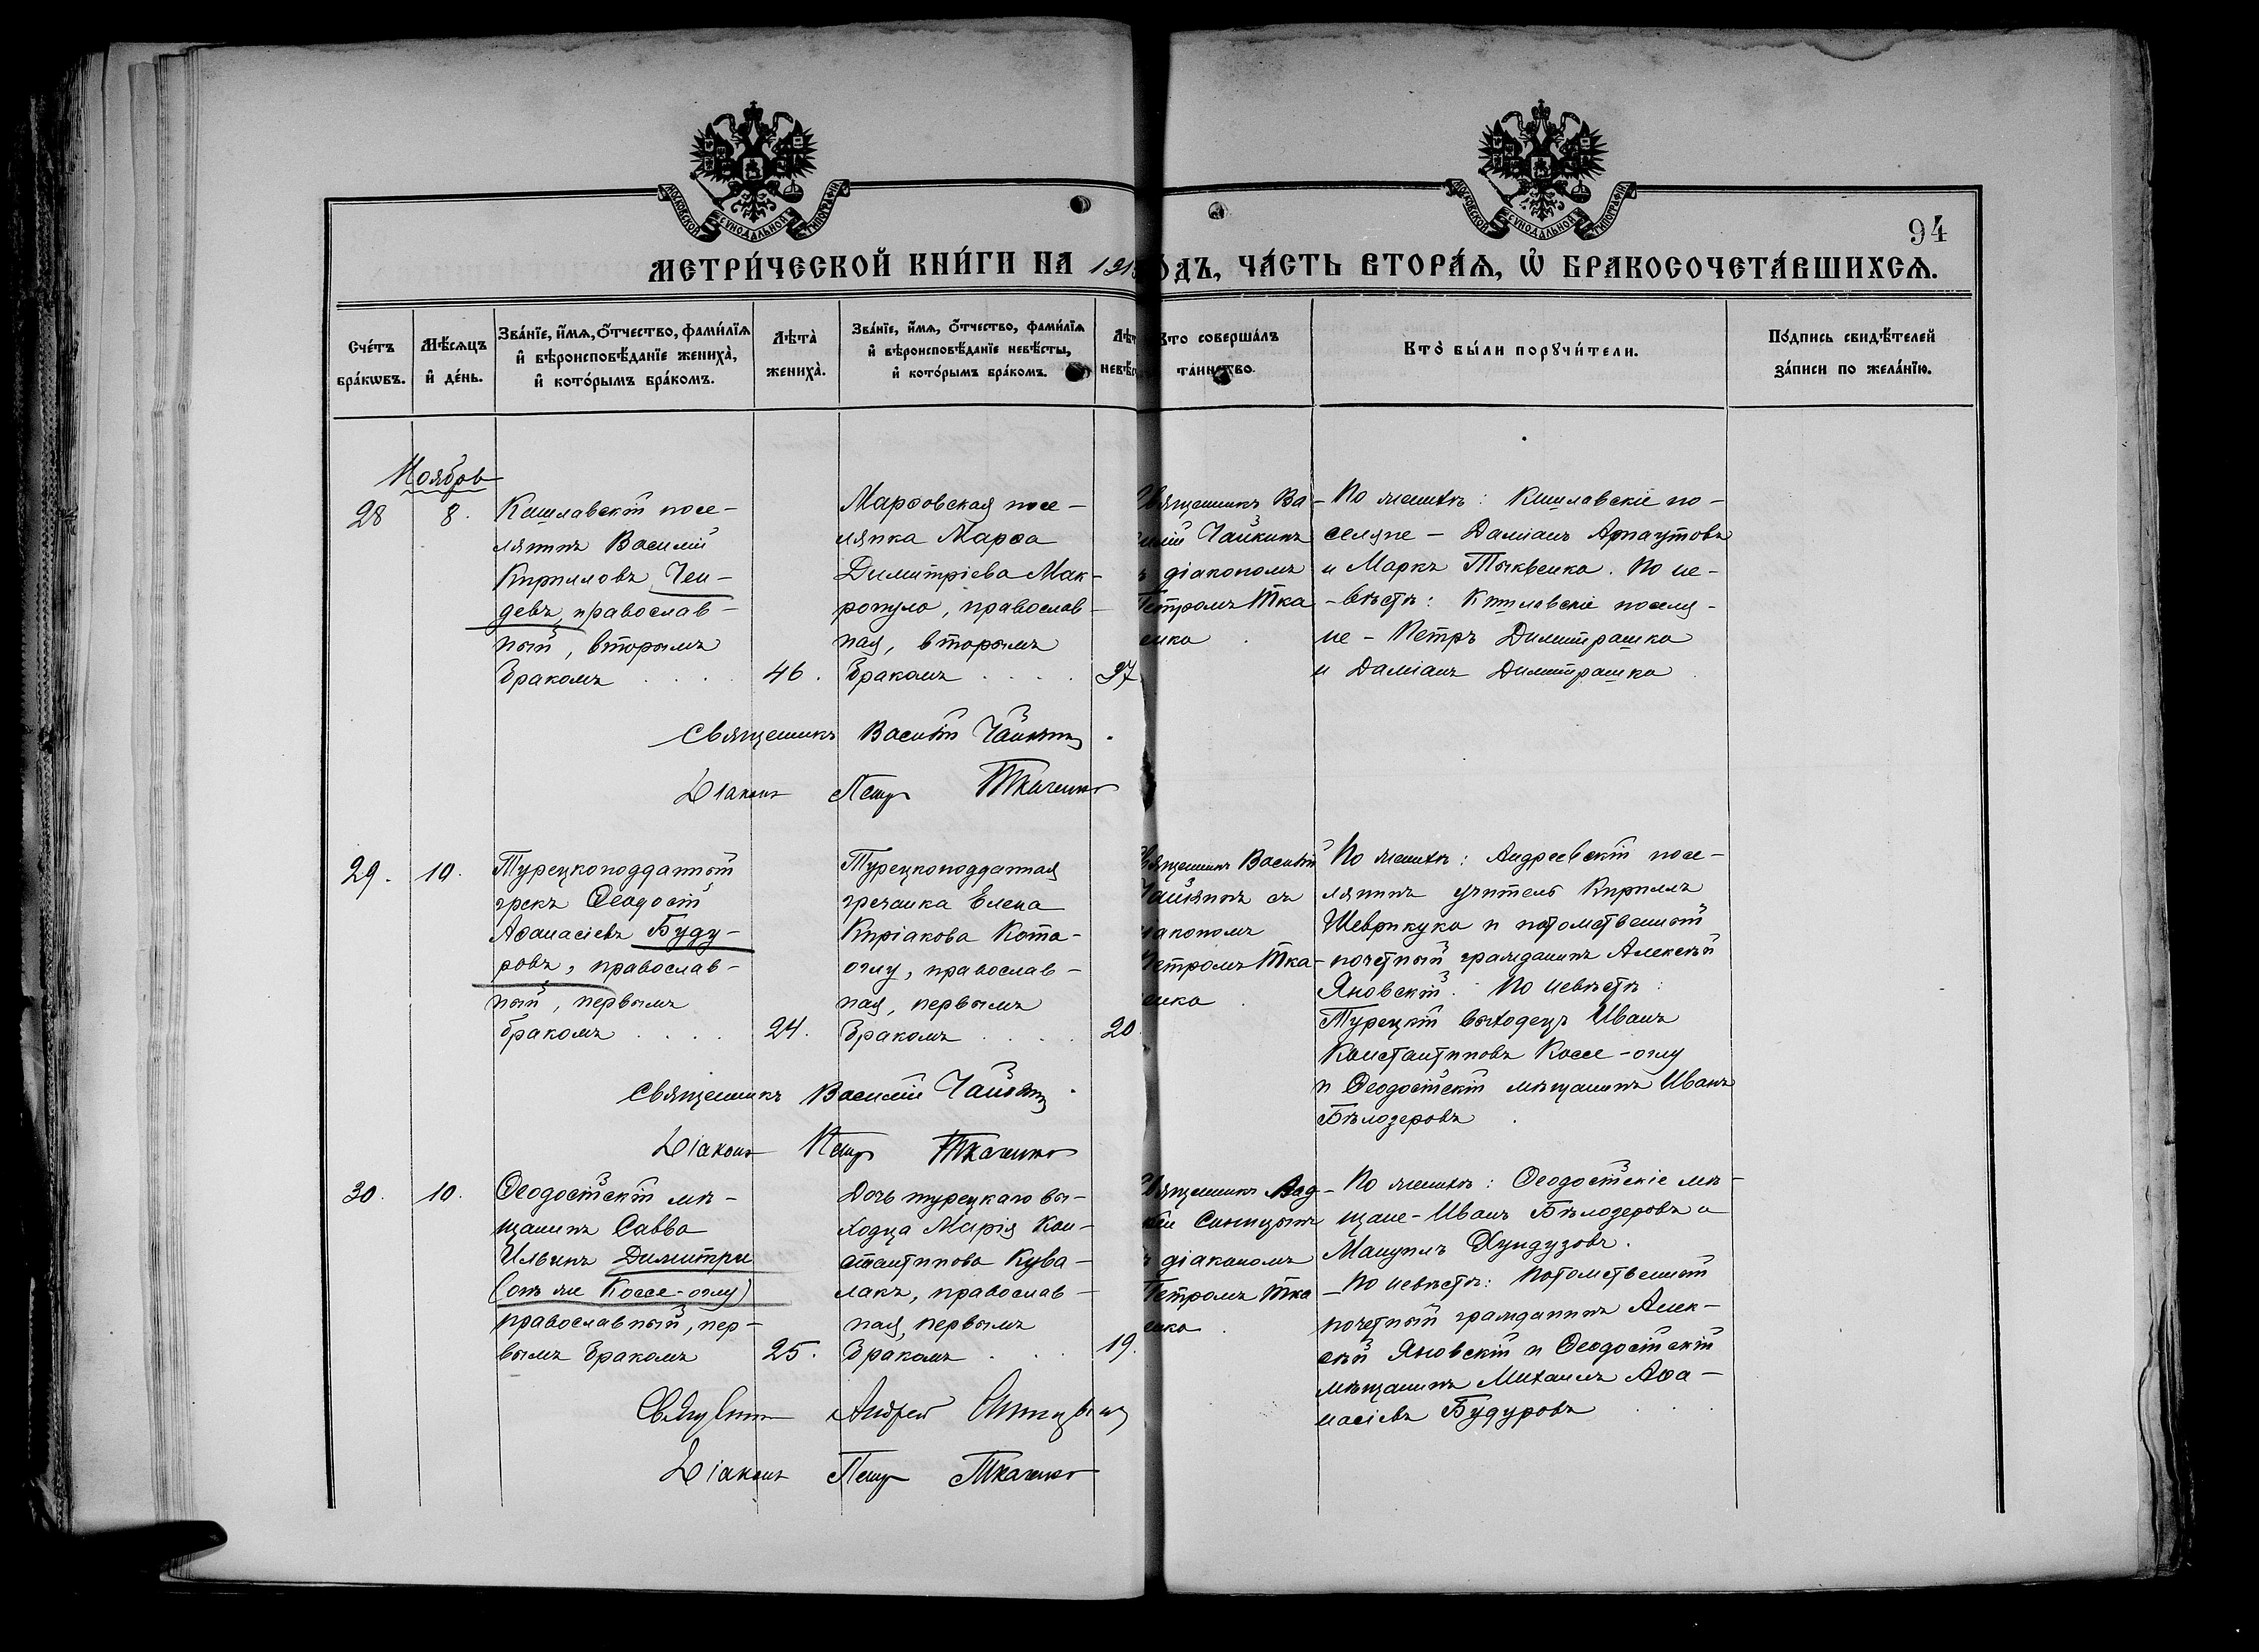 МОСКОВСКОЙ СУНОДАЛЬНОЙ ТИПОГРАФІИ
МОСКОВСКОЙ СУНОДАЛЬНОЙ ТИПОГРАФІИ
94
МЕТРИ́ЧЕСКОЙ КНИ́ГИ НА 191
ОДЪ, ЧА́СТЬ ВТОРА́Ѧ, Ѡ҆ БРАКОСОЧЕТА́ВШИХСѦ.
Сче́тъ бра́кѡвъ.
Мѣ́сѧцъ и҆ де́нь.
Зва́нїе, и҆́мѧ, ѻ҆́тчество, фами́лїѧ
и҆ вѣроисповѣ́данїе жениха̀,
и҆ кото́рымъ бра́комъ.
Лѣта̀ жениха̀.
Зва́нїе, и҆́мѧ, ѻ҆́тчество, фами́лїѧ
и҆ вѣроисповѣ́данїе невѣ́сты,
и҆ кото́рымъ бра́комъ.
Лѣт
невѣ́с
Кто соверша́лъ
та́инство.
Кто̀ бы́ли порꙋчи́тели.
По́дпись свидѣ́телей
за́писи по жела́нїю.
Ноябрь
28
8.
Кишлавскій посе-
лянинъ Василій
Кирилловъ Чен-
девъ, православ-
ный, вторымъ
бракомъ
46.
Марфовская посе-
лянка Марѳа
Димитріева Мак-
ропуло, православ-
ная, вторымъ
бракомъ
37
Священникъ Ва-
силій Чайкинъ
ъ діакономъ
Петромъ Тка
енко
По женихѣ: Кишлавскіе по-
селяне - Даміанъ Арнаутовъ
и Маркъ Тыквенко. По не-
-вѣстѣ: Кишлавскіе поселя-
не - Петръ Димитрашко
и Даміанъ Димитрашко
Священникъ Василій Чайкинъ
Діаконъ Петръ Ткаченко
29.
10.
Турецкоподданный
грекъ Ѳеодосій
Аѳанасіевъ Буду-
ровъ, православ-
ный, первымъ
бракомъ
24.
Турецкоподданная
гречанка Елена
Киріакова Кота-
оглу, православ-
ная, первымъ
бракомъ
20
Священникъ Василій
Чайкинъ съ
іакономъ
Петромъ Тка-
енко
По женихѣ: Андреевскій посе-
лянинъ учитель Кириллъ
Шеврикуко и потомственный
почетный гражданинъ Алексѣй
Яновскій. По невѣстѣ:
Турецкій выходецъ Иванъ
Константиновъ Коссе-оглу
и Ѳеодосійскій мѣщанинъ Иванъ
Бѣлозеровъ
Священникъ Василій Чайкинъ
Діаконъ Петръ Ткаченко
30.
10.
Ѳеодосійскій мѣ-
щанинъ Савва
Ильинъ Димитри
(онъ же Коссе-оглу)
православный, пер-
вымъ бракомъ
25.
Дочь турецкаго вы-
ходца Марія Кон-
стантинова Кува-
лакъ, православ-
ная, первымъ
бракомъ
19.
Священникъ
Синицынъ
ъ діакономъ
Петромъ Тка
енко
По женихѣ: Ѳеодосійскіе мѣ-
щане - Иванъ Бѣлозеровъ и
Мануилъ Хундузовъ.
- По невѣстѣ: Потомственный
почетный гражданинъ Алек-
сѣй Яновскій и Ѳеодосійскій
мѣщанинъ Михаилъ Аѳа-
насіевъ Будуровъ
Священникъ Андрей Синицынъ
Діаконъ Петръ Ткаченко